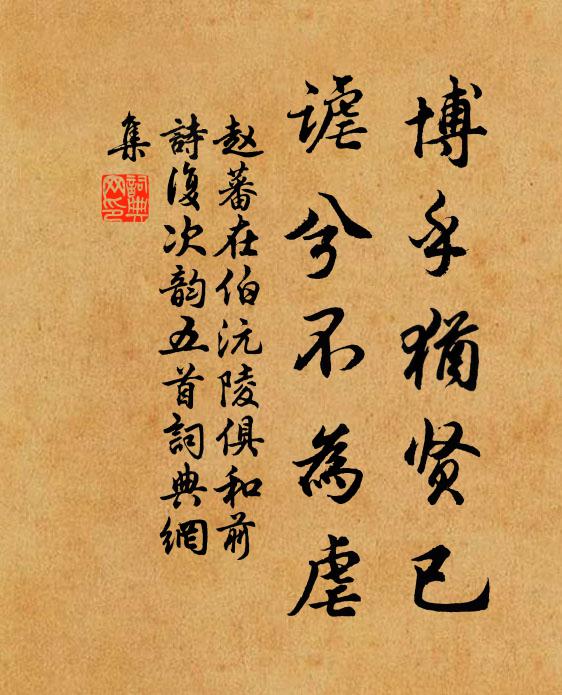 博乎猶贤已
謔兮不為虐
赵蕃在伯沅陵俱和前
詩復次韵五首詞典網
集
詞典
网印